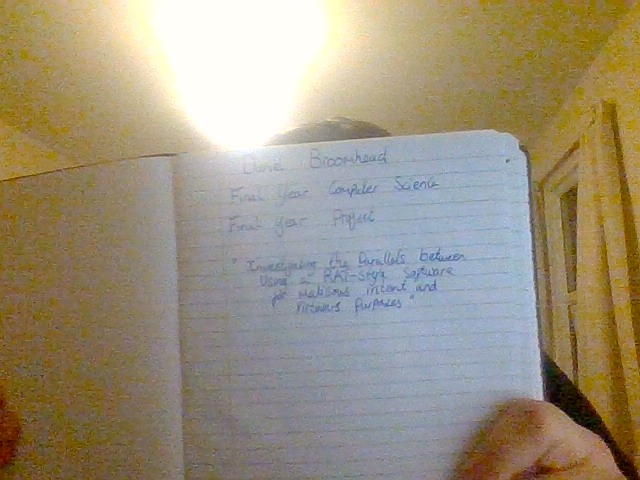 Daniel Broomhead
Final Year Computer Science
Final Year Project
"Investigating the Parallels between
Using a RAT-style Software
for Malicious intent and
Purposes"